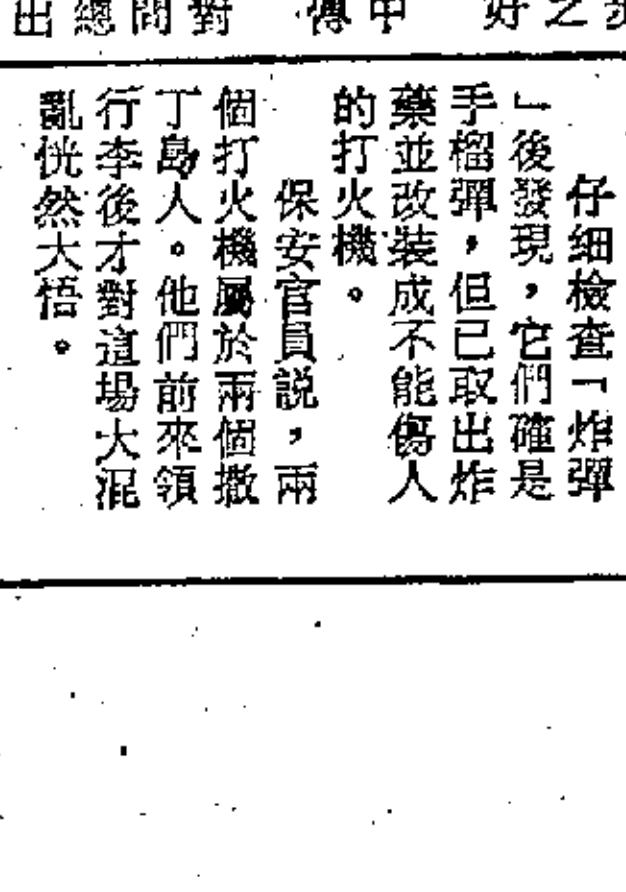 好之
中傳
對問總出
仔細檢查「炸彈
」後發現,它們確是
手榴彈,但已取出炸
藥並改裝成不能傷人
的打火機。
保安官員説,兩
個打火機屬於兩個撒
丁島人。他們前來領
行李後才對這場大混
亂恍然大悟。